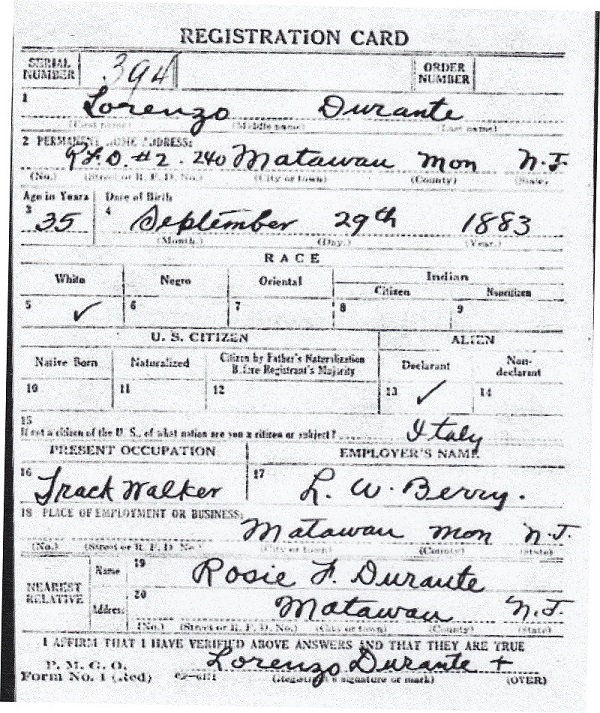 REGISTRATION CARD
SERIAL NUMBER 394 ORDER NUMBER
1 Lorenzo Durante
(First name) (Middle name) (Last name)
2 PERMANENT HOME ADDRESS:
R.F.D. #2. 240 Matawan Mon N.J.
(No.) (Street or R. F. D. No.) (City or town) (County) (State)
Age in Years Date of Birth
3 35 4 September 29th 1883
(Month.) (Day.) (Year.)
RACE
White Negro Oriental Indian
Citizen Noncitizen
5 ✓ 6 7 8 9
U. S. CITIZEN ALIEN
Native Born Naturalized Citizen by Father's Naturalization Before Registrant's Majority Declarant Non-declarant
10 11 12 13 ✓ 14
15
If not a citizen of the U. S., of what nation are you a citizen or subject? Italy
PRESENT OCCUPATION EMPLOYER'S NAME
16 Track Walker 17 L. W. Berry.
18 PLACE OF EMPLOYMENT OR BUSINESS:
Matawan Mon N.J.
(No.) (Street or R. F. D. No.) (City or town) (County) (State)
NEAREST RELATIVE Name 19 Rosie F. Durante
Address 20 Matawan N.J.
(No.) (Street or R. F. D. No.) (City or town) (County) (State)
I AFFIRM THAT I HAVE VERIFIED ABOVE ANSWERS AND THAT THEY ARE TRUE
P. M. G. O. Lorenzo Durante +
Form No. 1 (Red) (Registrant's signature or mark) (OVER)